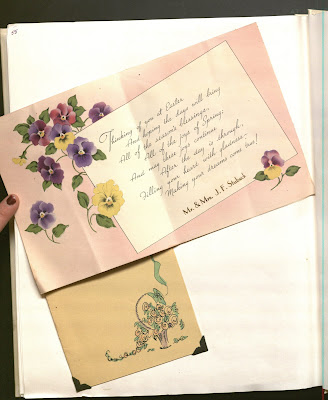 Thinking of you at Easter
And hoping the days will bring
All of the season's blessings,
All of the joys of Spring,
And may these joys continue
After the day is through,
Filling your heart with gladness—
Making your dreams come true!
Mr. & Mrs. J. F.